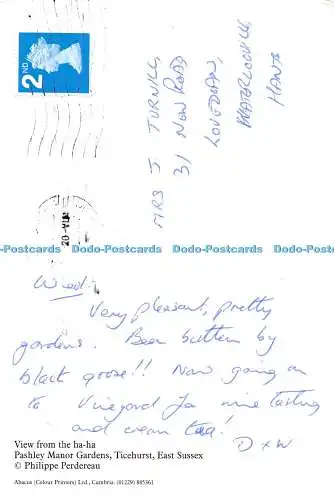 2ND
MRS J TURNILL
31 NEW ROAD
LOVEDEAN,
WATERLOOVILLE
HANTS
D-Postcards D-Postcards D-Postcards D-Postcards
Wed:-
Very pleasant, pretty
gardens. Been bitten by
black goose!! Now going on
to Vineyard for wine tasting
and cream tea!
D x W
View from the ha-ha
Pashley Manor Gardens, Ticehurst, East Sussex
© Philippe Perdereau
Abacus (Colour Printers) Ltd., Cumbria. (01229) 885361